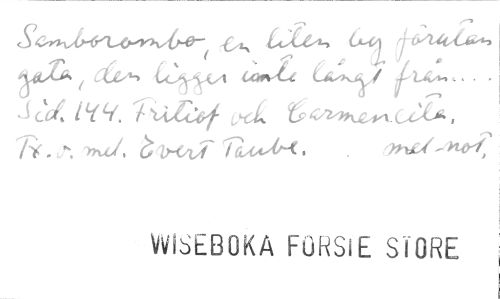 Samborombo, en liten by förutan
gata, den ligger inte långt från....
Sid. 144. Fritiof och Carmencita.
Tx. o. mel. Evert Taube. mel-not.
WISEBOKA FORSIE STORE